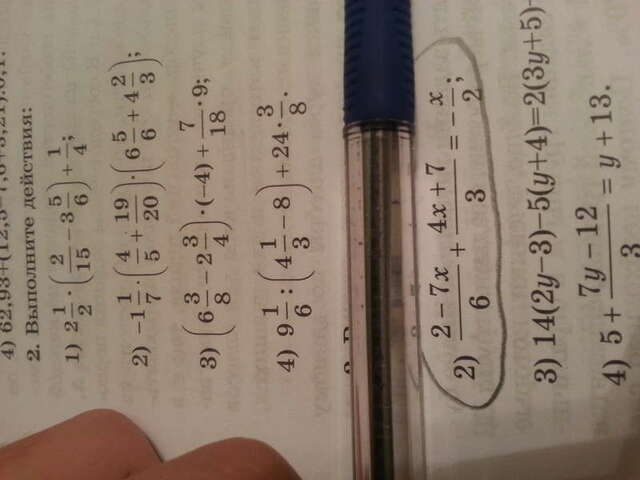 4) 62,93+(12,5–7,6+3,21):0,1.
2. Выполните действия:
1) 2 1/2 · (2/15 – 3 5/6) + 1/4;
2) –1 1/7 · (4/5 + 19/20) · (6 5/6 + 4 2/3);
3) (6 3/8 – 2 3/4) · (–4) + 7/18 · 9;
4) 9 1/6 : (4 1/3 – 8) + 24 · 3/8.
2) (2 – 7x)/6 + (4x + 7)/3 = –x/2;
3) 14(2y–3)–5(y+4)=2(3y+5)
4) 5 + (7y – 12)/3 = y + 13.